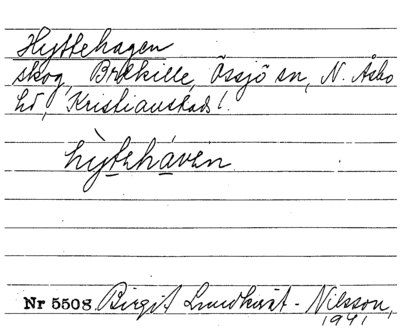 Hyttehagen
skog, Bälkille, Össjö sn, N. Åsbo
hd, Kristianstads l.
hỳtehávën
Nr 5508 Birgit Lundkvist-Nilsson,
1941